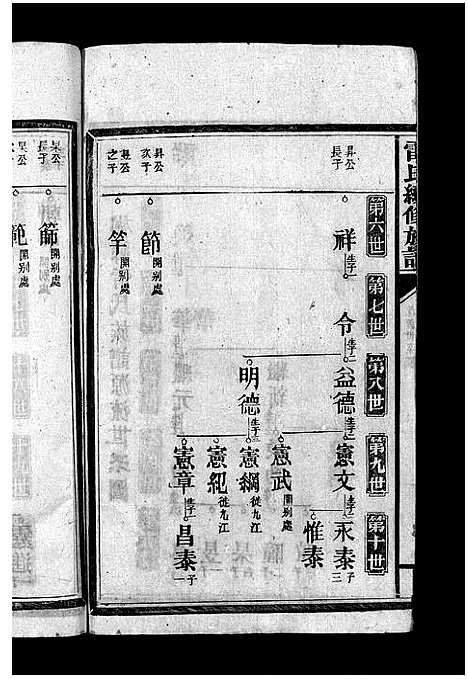 雷氏續修族譜
第六世
第七世
第八世
第九世
第十世
昇公長子
祥 生子一
令 生子二
益德 生子二
憲文 生子二
永泰 子三
惟泰
憲武 開别處
明德 生子三
憲綱 從九江
憲紀 從九江
憲章 生子一
昌泰 子一
昇公次子
節 開别處
公之子
竿 開别處
杲公長子
篩 開别處
範 開别處